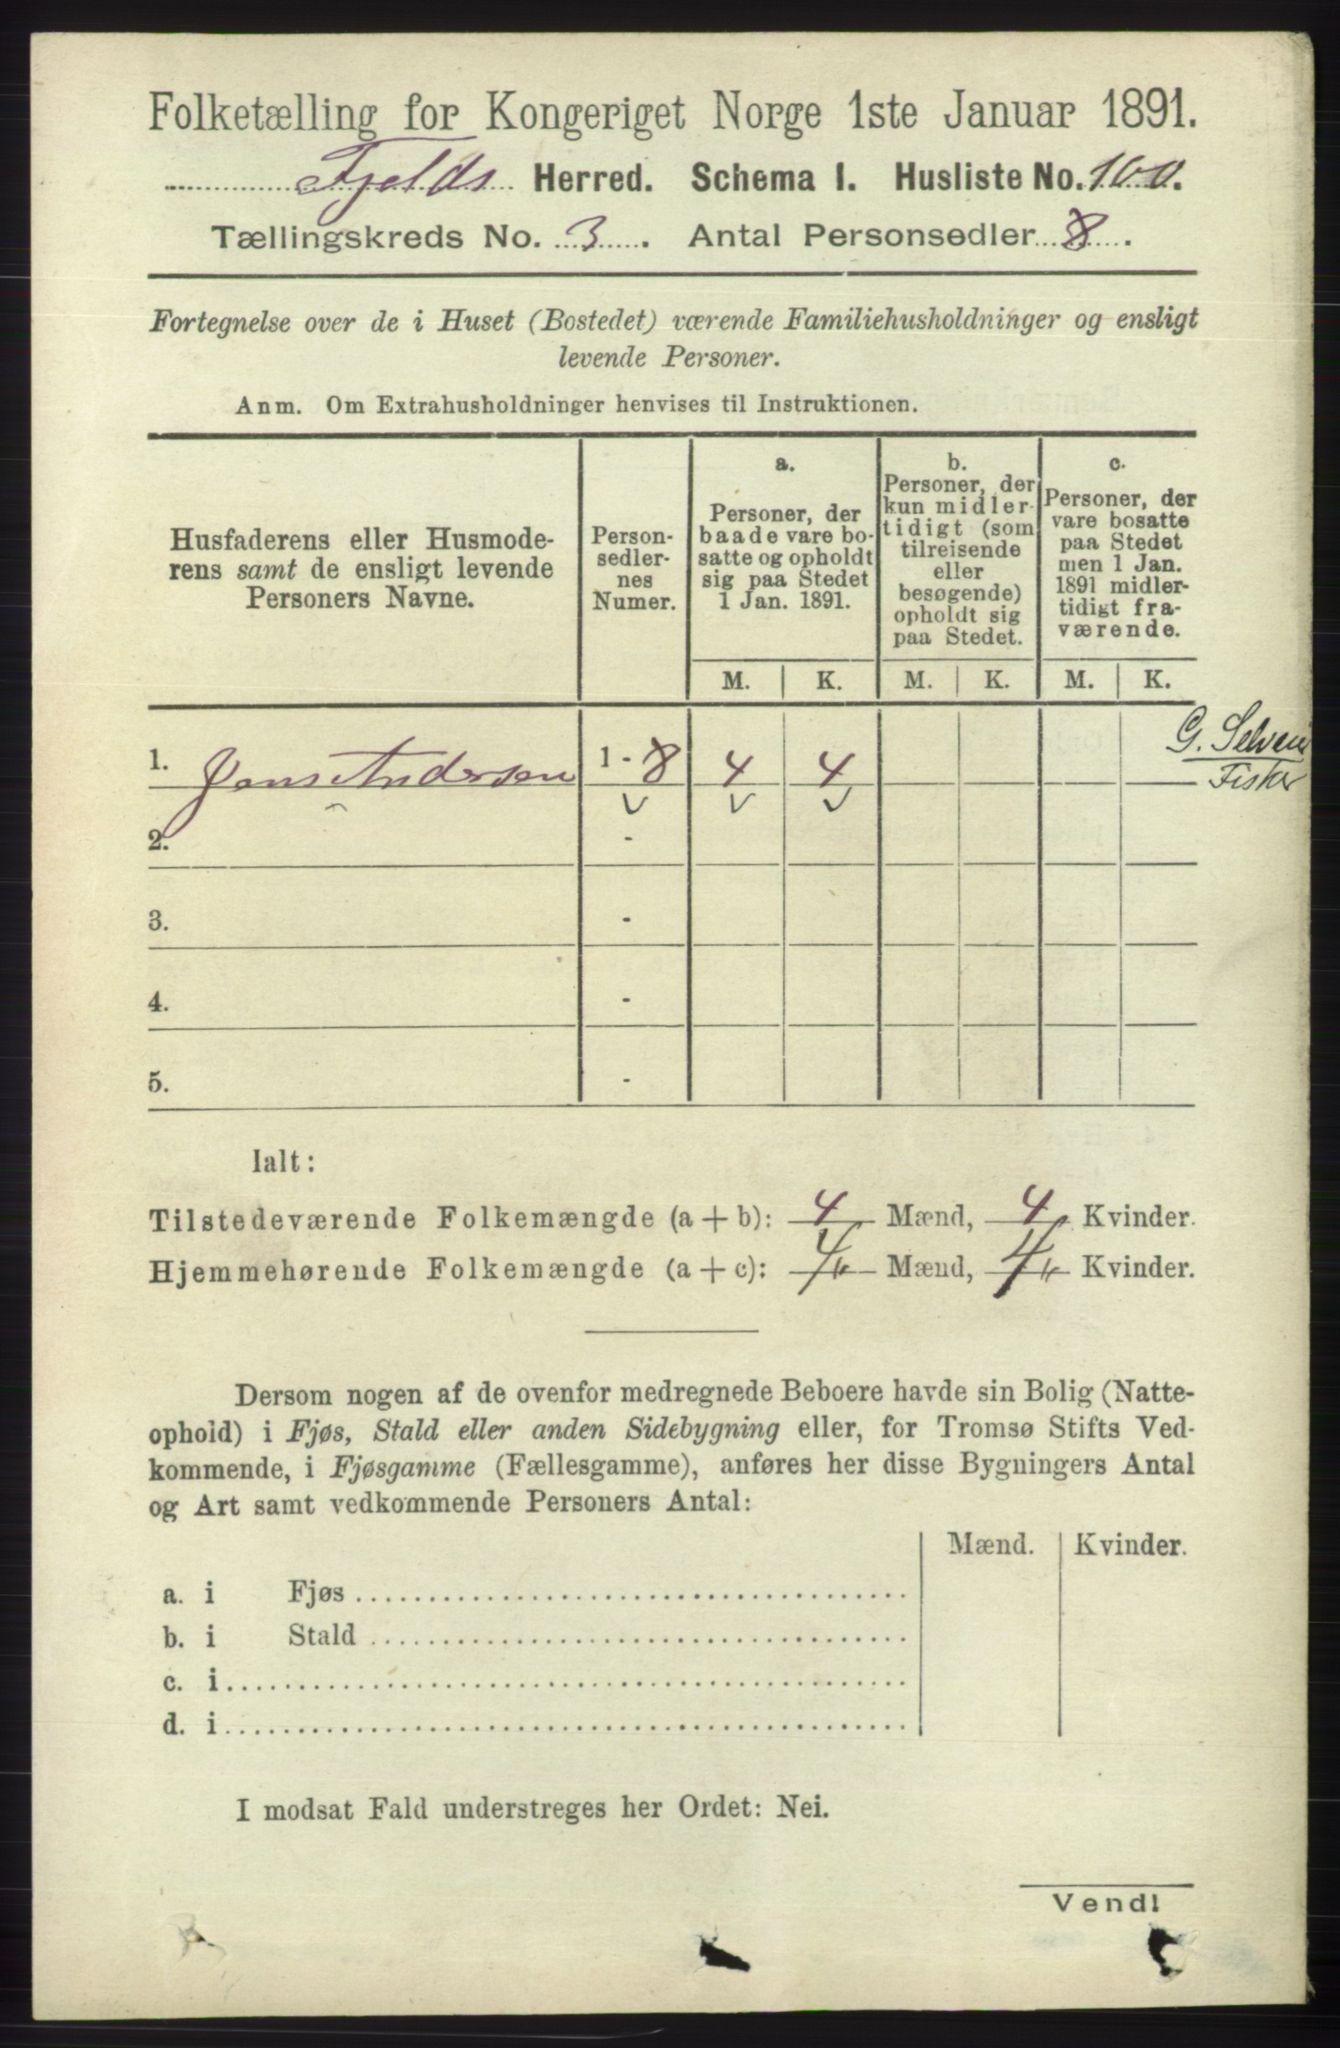 Folketælling for Kongeriget Norge 1ste Januar 1891.
Fjelds Herred. Schema I. Husliste No. 100.
Tællingskreds No. 3. Antal Personsedler 8.
Fortegnelse over de i Huset (Bostedet) værende Familiehusholdninger og ensligt
levende Personer.
Anm. Om Extrahusholdninger henvises til Instruktionen.
Husfaderens eller Husmode-
rens samt de ensligt levende
Personers Navne.
Person-
sedler-
nes
Numer.
a.
Personer, der
baade vare bo-
satte og opholdt
sig paa Stedet
1 Jan. 1891.
b.
Personer, der
kun midler-
tidigt (som
tilreisende
eller
besøgende)
opholdt sig
paa Stedet.
c.
Personer, der
vare bosatte
paa Stedet
men 1 Jan.
1891 midler-
tidigt fra-
værende.
M. K. M. K. M. K.
1. Jens Andersen 1 - 8 4 4
G.
Fisker
2. -
3. -
4. -
5. -
Ialt:
Tilstedeværende Folkemængde (a + b): 4 Mænd, 4 Kvinder.
Hjemmehørende Folkemængde (a + c): 4 " Mænd, 4 " Kvinder.
Dersom nogen af de ovenfor medregnede Beboere havde sin Bolig (Natte-
ophold) i Fjøs, Stald eller anden Sidebygning eller, for Tromsø Stifts Ved-
kommende, i Fjøsgamme (Fællesgamme), anføres her disse Bygningers Antal
og Art samt vedkommende Personers Antal:
Mænd. Kvinder.
a. i Fjøs
b. i Stald
c. i
d. i
I modsat Fald understreges her Ordet: Nei.
Vend!